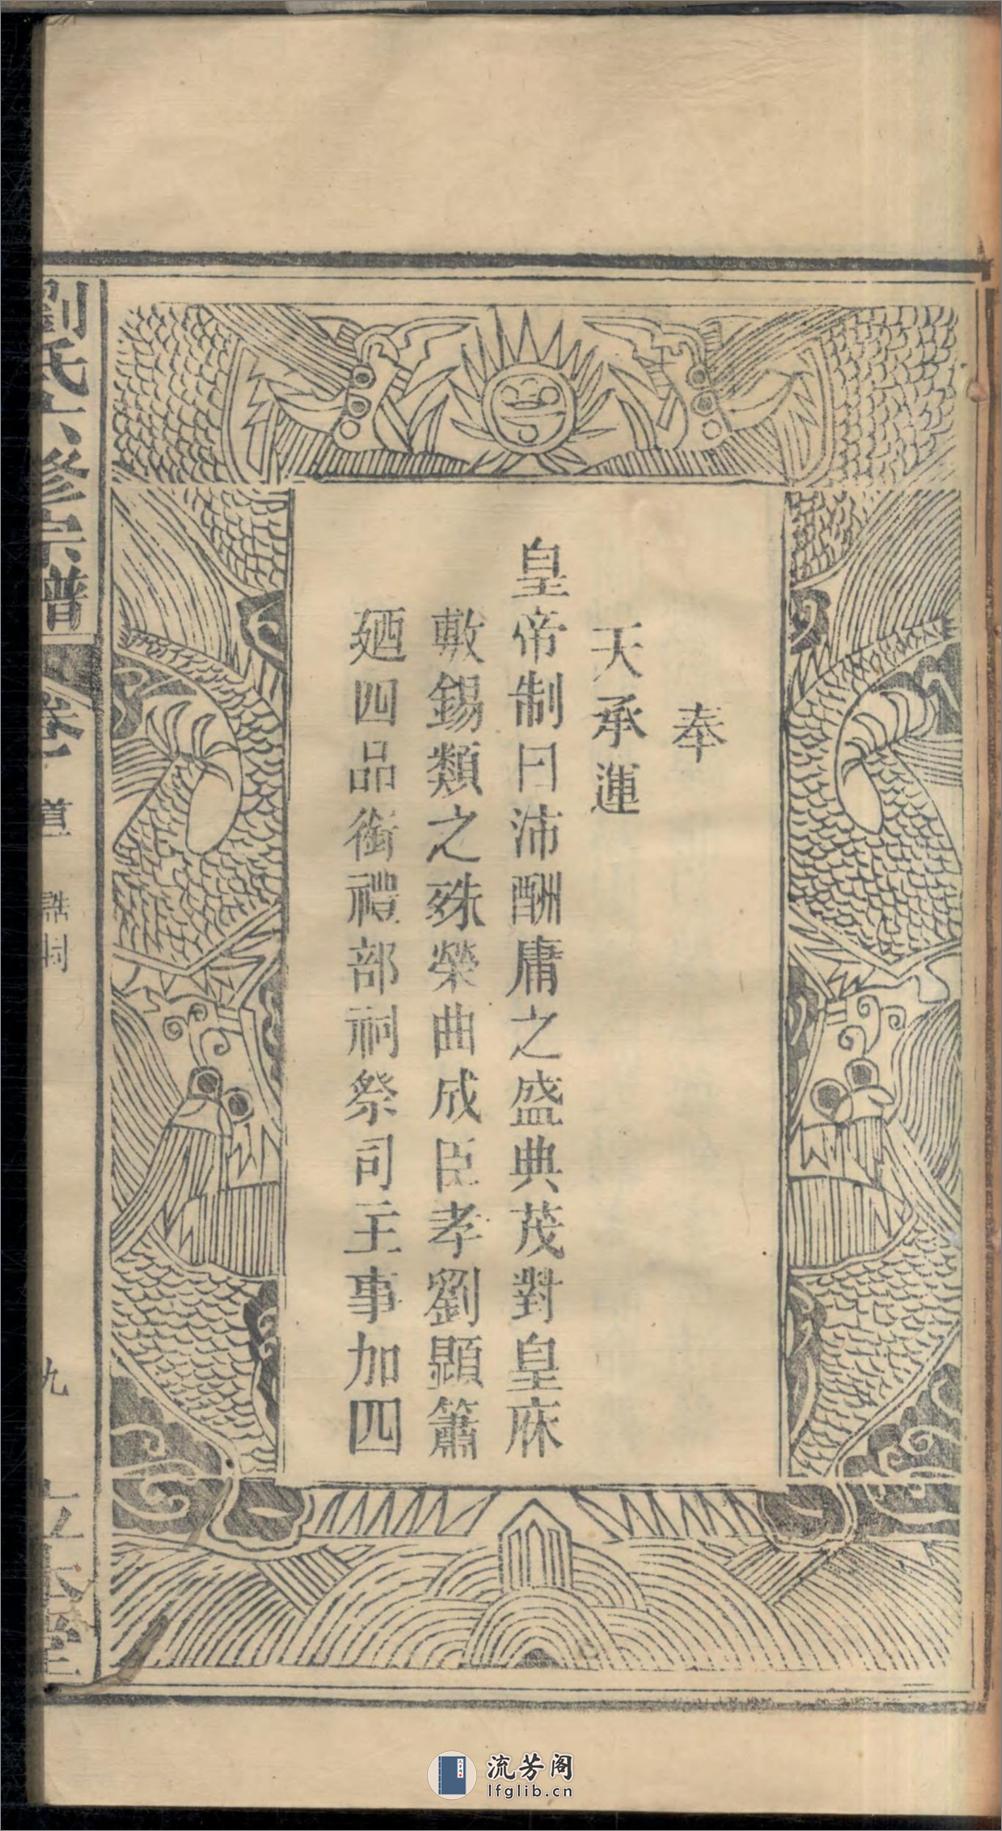 奉
天承運
皇帝制曰沛酬庸之盛典茂對皇庥
敷錫類之殊榮曲成臣孝劉顯簫
廼四品銜禮部祠祭司主事加四
劉氏六修宗譜
卷一
道
誥封
九
立本堂
流芳阁
lfglib.cn